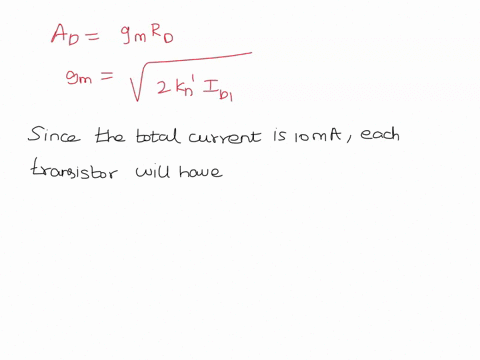 A_D = g_m R_D
g_m = √(2 k_n' I_D1)
Since the total current is 10mA, each
transistor will have